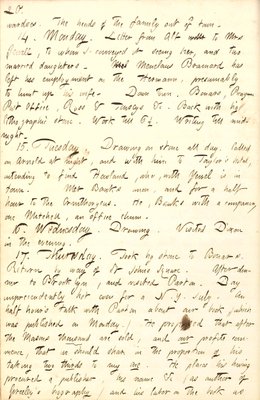 wardees. The heads of the family out of town.
14. Monday. Letter from Alf with to Mrs
Jewell, to whom I conveyed it seeing her, and two
married daughters. Menclaus Brainard has
left his employment on the Hermann, presumably
to hunt up his wife. Down town. Bonars,
Post Office, Ross & Touseys &c. Back with big
lithographic stone. Work till 6½. Writing till mid-
night.
15. Tuesday. Drawing on stone all day. Called
on Arnold at night, and with him to Taylor's hotel,
intending to find Howland, who with Jewell is in
town. Met Banks now, and for a half
hour to the Ornithorhyncus. Banks with a companion,
one Matched, an office chum.
16. Wednesday. Drawing. Visited Dixon
in the evening.
17. Thursday. Took by stone to Bonars.
Return by way of St Johns Square. After din-
ner to Brooklyn, and visited Parton. Day
imprecedently hot even for a N. Y. July.
half hour's talk with Parton about our book, which
was published on Monday. He proposed that after
the Masons thousand are sold, and our profits com-
mence, that is should share in the proportion of his
taking two thirds to my one. He places his having
procured a publisher his name, as author of
Greeley's biography, and his labor on the book as